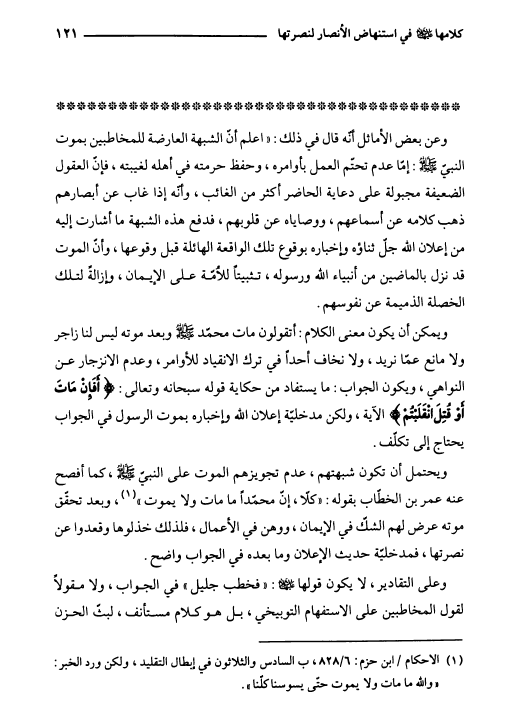 كلامها ﷺ في استنهاض الأنصار لنصرتها ١٢١
وعن بعض الأماثل أنّه قال في ذلك: «اعلم أنّ الشبهة العارضة للمخاطبين بموت
النبيّ ﷺ: إمّا عدم تحتّم العمل بأوامره، وحفظ حرمته في أهله لغيبته، فإنّ العقول
الضعيفة مجبولة على دعاية الحاضر أكثر من الغائب، وأنّه إذا غاب عن أبصارهم
ذهب كلامه عن أسماعهم، ووصاياه عن قلوبهم، فدفع هذه الشبهة ما أشارت إليه
من إعلان الله جلّ ثناؤه وإخباره بوقوع تلك الواقعة الهائلة قبل وقوعها، وأنّ الموت
قد نزل بالماضين من أنبياء الله ورسوله، تثبيتاً للأمّة على الإيمان، وإزالةً لتلك
الخصلة الذميمة عن نفوسهم.
ويمكن أن يكون معنى الكلام: أتقولون مات محمّد ﷺ وبعد موته ليس لنا زاجر
ولا مانع عمّا نريد، ولا نخاف أحداً في ترك الانقياد للأوامر، وعدم الانزجار عن
النواهي، ويكون الجواب: ما يستفاد من حكاية قوله سبحانه وتعالى: ﴿أَفَإِنْ مَاتَ
أَوْ قُتِلَ انْقَلَبْتُمْ﴾ الآية، ولكن مدخليّة إعلان الله وإخباره بموت الرسول في الجواب
يحتاج إلى تكلّف.
ويحتمل أن تكون شبهتهم، عدم تجويزهم الموت على النبيّ ﷺ، كما أفصح
عنه عمر بن الخطّاب بقوله: «كلّا، إنّ محمّداً ما مات ولا يموت»(١)، وبعد تحقّق
موته عرض لهم الشكّ في الإيمان، ووهن في الأعمال، فلذلك خذلوها وقعدوا عن
نصرتها، فمدخليّة حديث الإعلان وما بعده في الجواب واضح.
وعلى التقادير، لا يكون قولها: «فخطب جليل» في الجواب، ولا مقولاً
لقول المخاطبين على الاستفهام التوبيخي، بل هو كلام مستأنف، لبثّ الحزن
(١) الاحكام / ابن حزم: ٨٢٨/٦، ب السادس والثلاثون في إبطال التقليد، ولكن ورد الخبر:
«والله ما مات ولا يموت حتّى يسوسنا كلّنا».